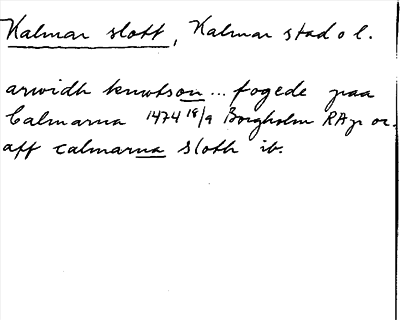 Kalmar slott, Kalmar stad o l.
arwidh knwtson ... fogede paa
Calmarna 1474 18/9 Borgholm RAp or.
aff calmarna sloth ib.